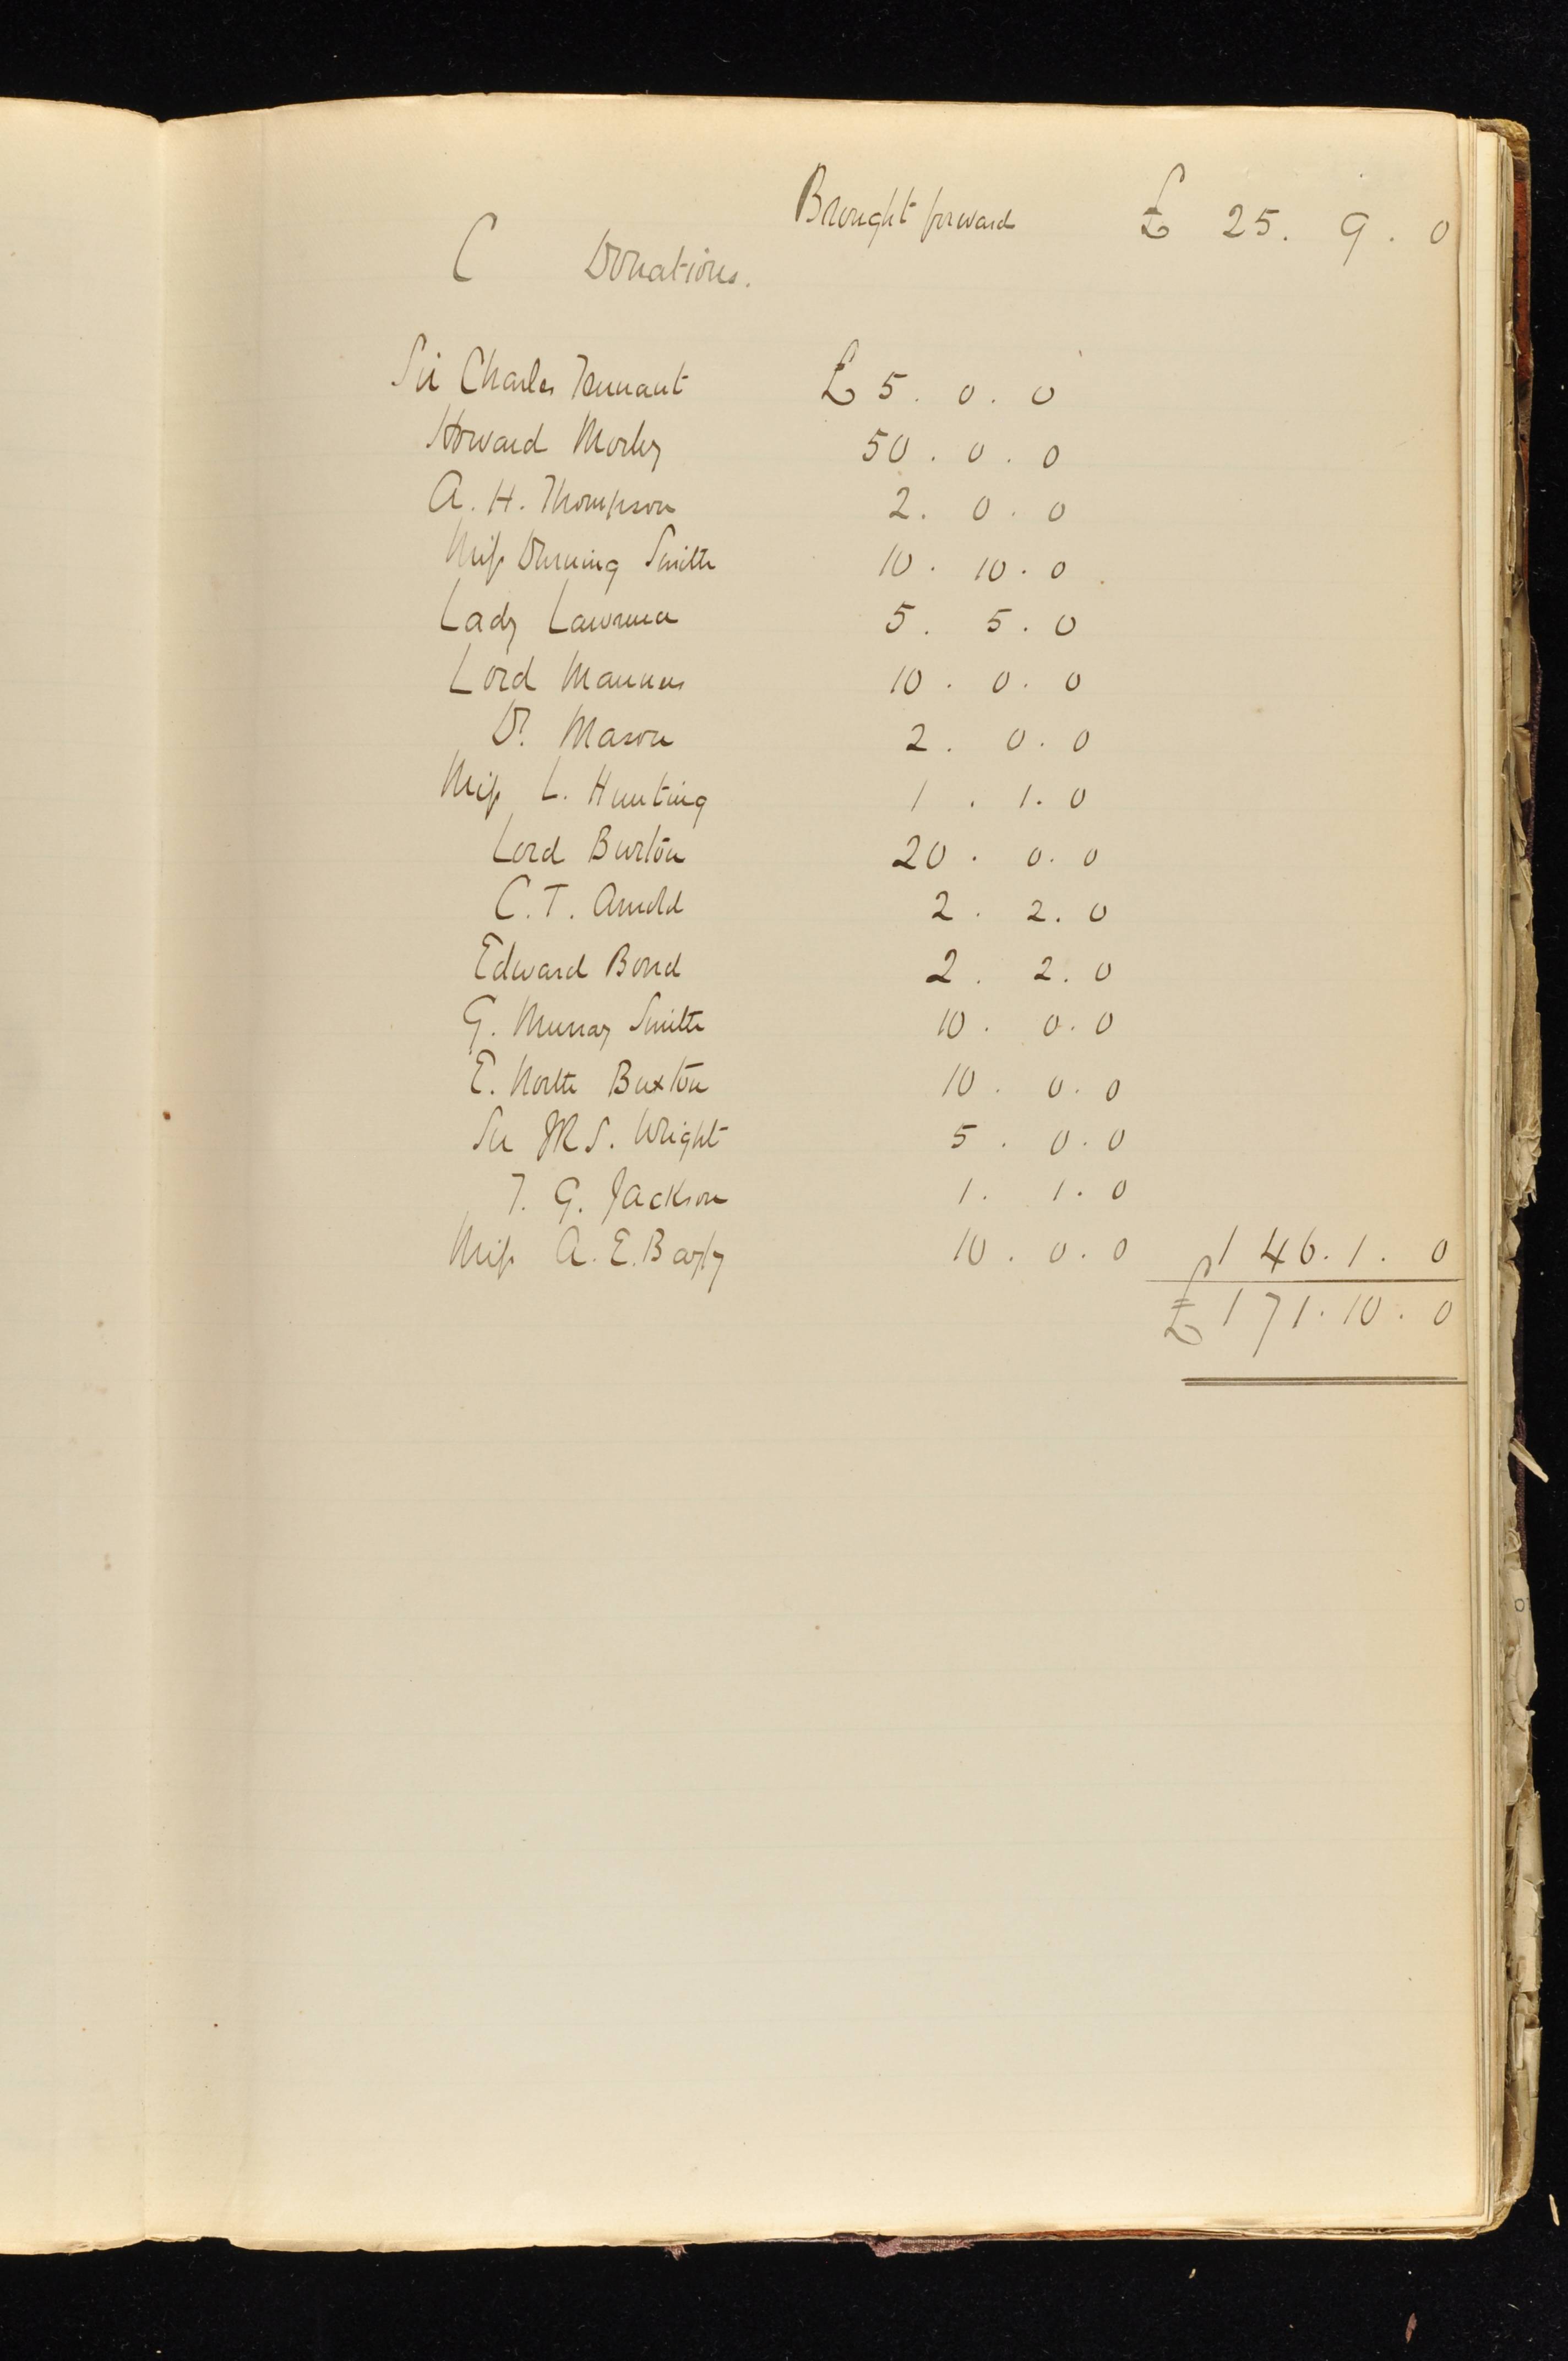 Brought forward £ 25. 9. 0
C Donations.
Sir Charles Tennant £ 5. 0. 0
Howard Morley 50. 0. 0
A. H. Thompson 2. 0. 0
Miss Durning Smith 10. 10. 0
Lady Lawrence 5. 5. 0
Lord Manners 10. 0. 0
Dr. Mason 2. 0. 0
Miss L. Hunting 1. 1. 0
Lord Burton 20. 0. 0
C. T. Arnold 2. 2. 0
Edward Bond 2. 2. 0
G. Murray Smith 10. 0. 0
E. North Buxton 10. 0. 0
Sir R S. Wright 5. 0. 0
T. G. Jackson 1. 1. 0
Miss A. E. Bayly 10. 0. 0 146. 1. 0
£ 171. 10. 0